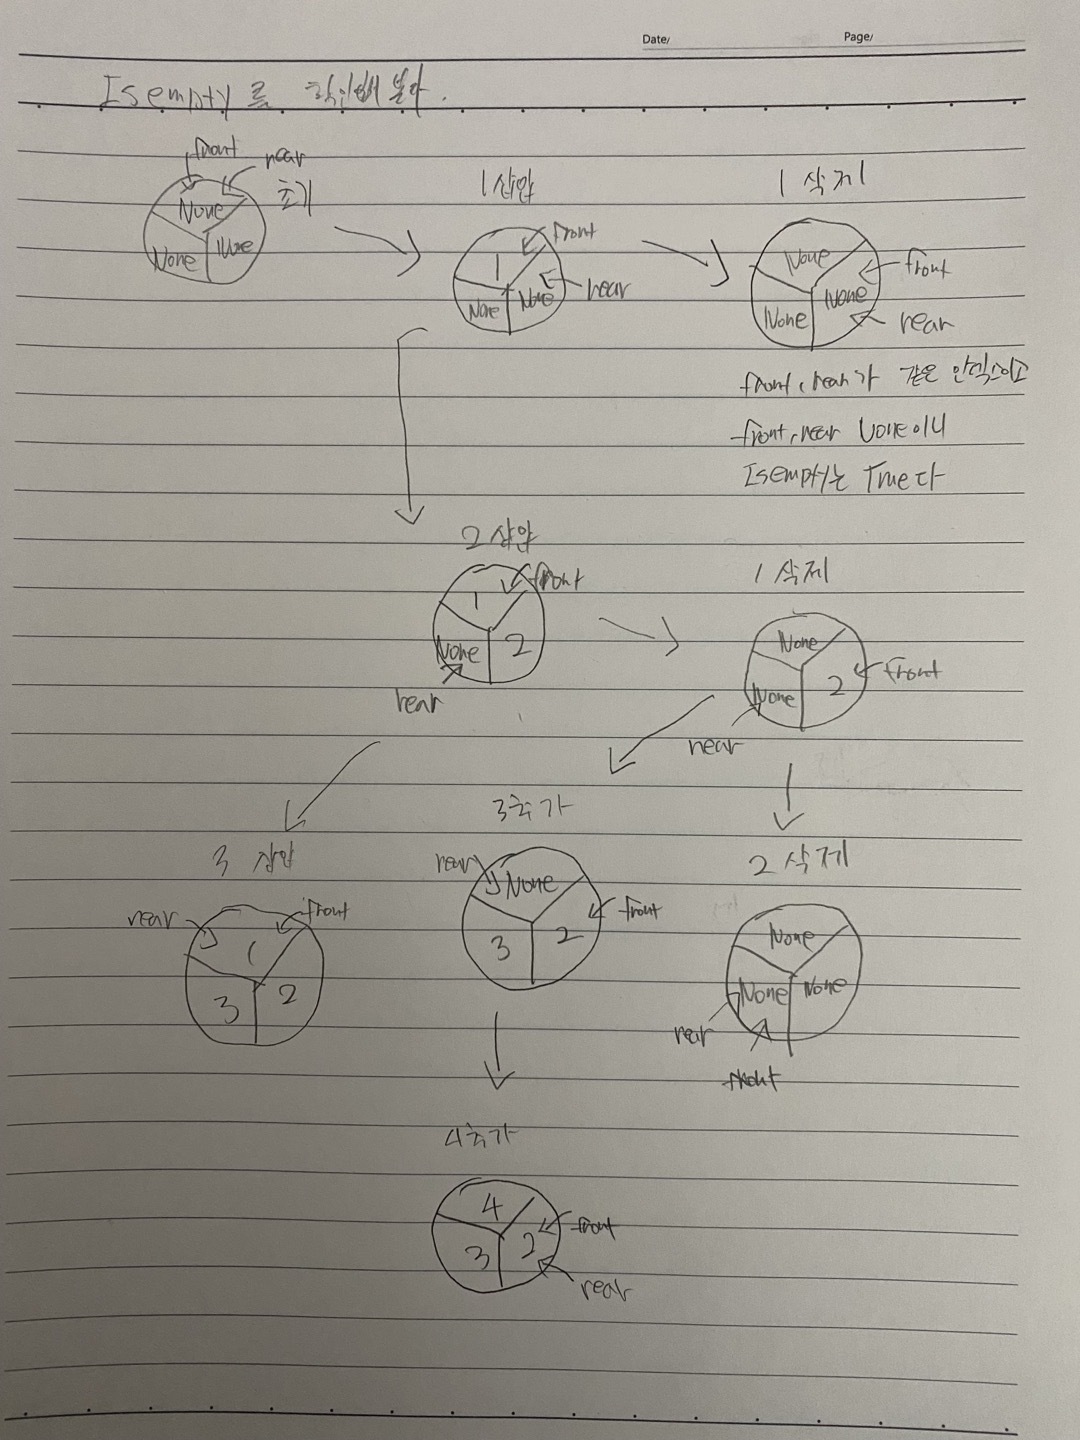 Date/
Page/
Isempty로 확인해 보자.
front
rear
초기
None
None
None
1 삽입
front
1
rear
None
None
1 삭제
None
front
None
None
rear
front, rear가 같은 인덱스이고
front, rear None이니
Isempty는 True다
2 삽입
front
1
None
2
rear
1 삭제
None
2
front
None
rear
3 삽입
rear
front
1
3
2
3추가
rear
None
front
3
2
2 삭제
None
None
None
rear
front
4추가
4
front
3
2
rear